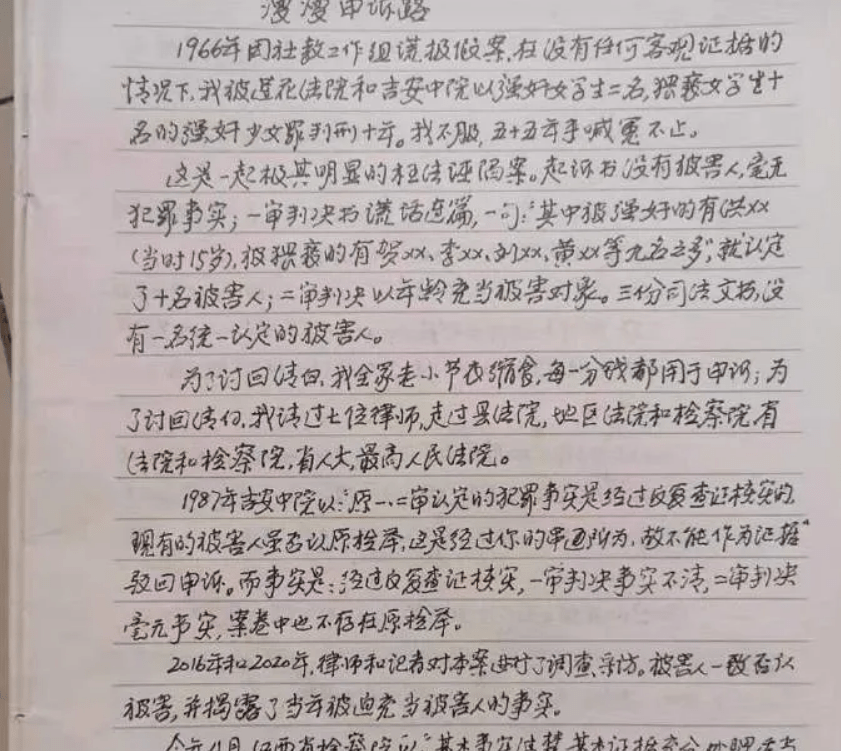 漫漫申诉路
1966年因社教工作组谎报假案,在没有任何客观证据的
情况下,我被莲花法院和吉安中院以强奸女学生二名,猥亵女学生十
名的强奸少女罪判刑十年。我不服,五十五年手喊冤不止。
这是一起极其明显的枉法诬陷案。起诉书没有被害人,毫无
犯罪事实;一审判决书谎话连篇,一句:"其中被强奸的有洪xx
(当时15岁),被猥亵的有贺xx、李xx、刘xx、黄xx等九名之多",就认定
了十名被害人;二审判决以年龄充当被害对象。三份司法文书,没
有一名统一认定的被害人。
为了讨回清白,我全家老小节衣缩食,每一分钱都用于申诉;为
了讨回清白,我请过七位律师,走过县法院,地区法院和检察院,省
法院和检察院,省人大,最高人民法院。
1987年吉安中院以:"原一、二审认定的犯罪事实是经过反复查证核实的,
现有的被害人虽否认原检举,这是经过你的串通所为,故不能作为证据"
驳回申诉。而事实是:经过反复查证核实,一审判决事实不清,二审判决
毫无事实,案卷中也不存在原检举。
2016年和2020年,律师和记者对本案进行了调查采访。被害人一致否认
被害,并揭露了当年被迫充当被害人的事实。
今年4月,江西省检察院以"基本事实清楚,基本证据充分,